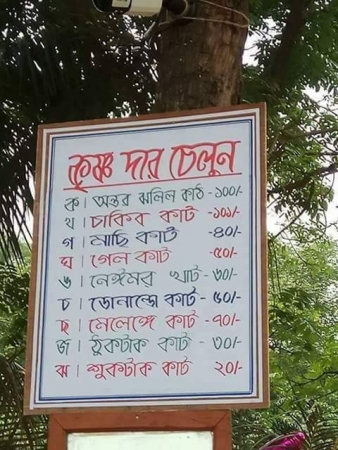 কৃষ্ণ দার চেলুন
ক। অন্তর ঝলিল কাঠ - ১০০/-
খ। চাকিব কার্ট - ১০১/-
গ। মাছি কার্ট - ৪০/-
ঘ। গেল কার্ট - ৫০/-
ঙ। নেঈমর খার্ট - ৬০/-
চ। ডোনাল্ডো কার্ট - ৫০/-
ছ। মেলেঙ্গে কার্ট - ৭০/-
জ। ঠুকটাক কার্ট - ৩০/-
ঝ। শুকটাক কার্ট ২০/-